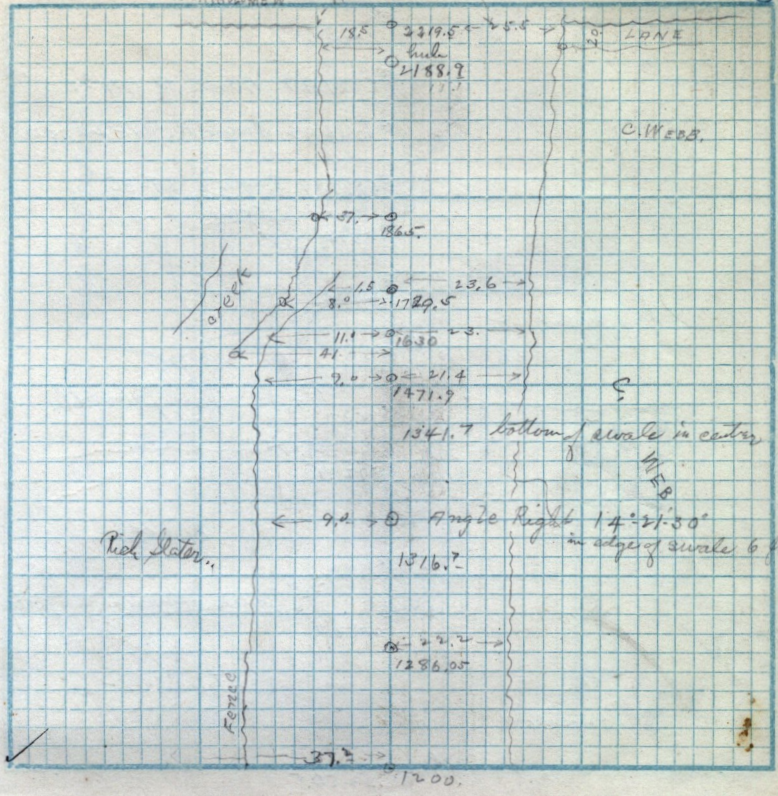 18.5 2219.5 25.5 20. LANE
hub
2188.9
C. WEBB.
37.
1865.
creek
1.5 23.6
8.0 1729.5
11.0 23.
1630
41.
9.0 21.4
1471.9
C.
1341.7 bottom of swale in center
WEB
9.0 Angle Right 14°-21'-30"
in edge of swale 6
Rich Slater..
1316.2
22.2
1286.05
Fence
37.2
1200.